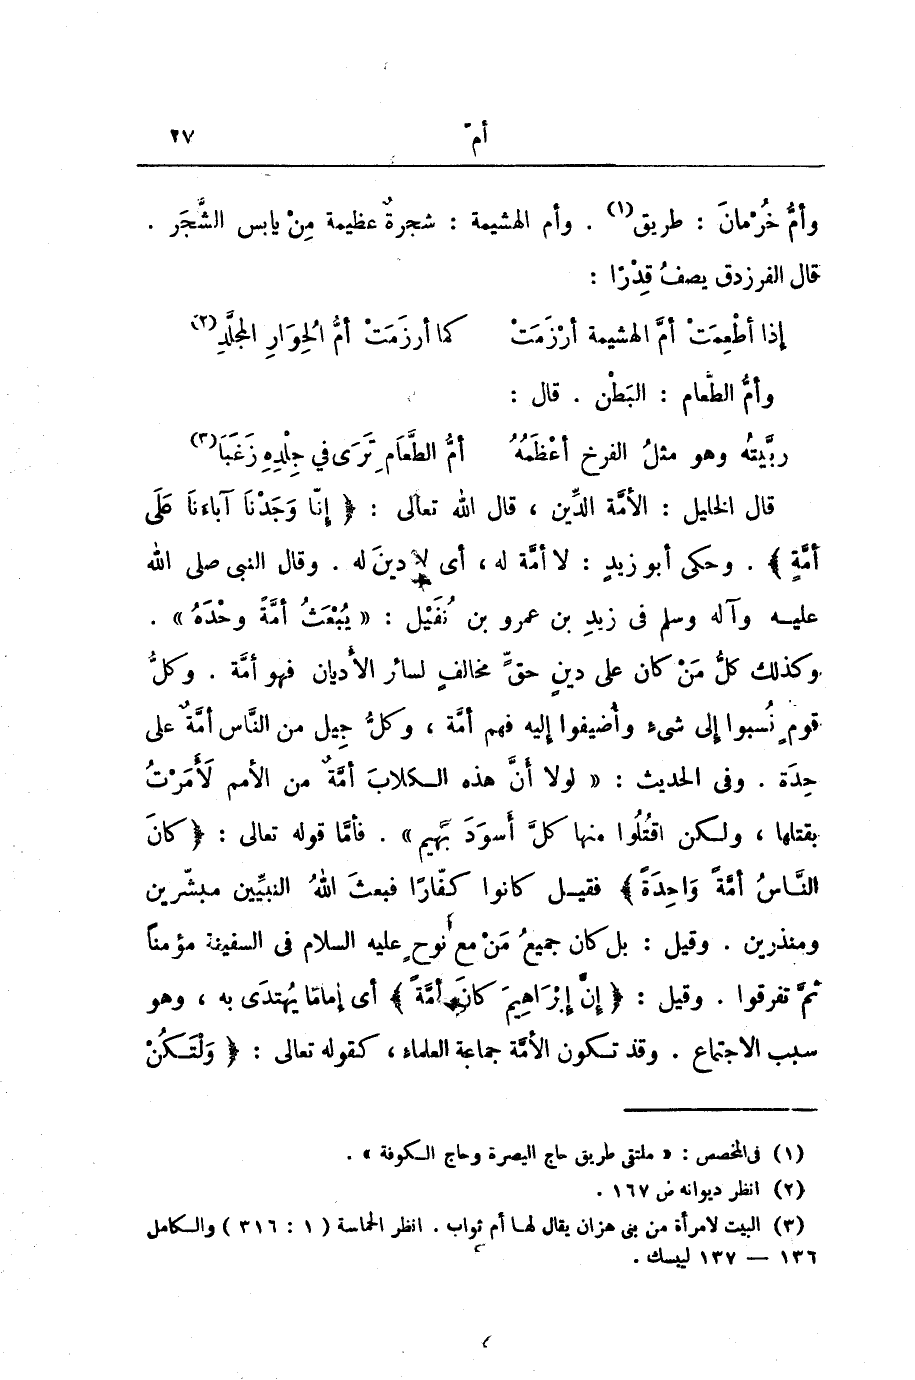 أم ٢٧
وأمُّ خُرْمانَ : طريق(١) . وأم الهشيمة : شجرةٌ عظيمة مِنْ يابس الشَّجَر .
قال الفرزدق يصفُ قِدْرًا :
إذا أُطْعِمَتْ أمَّ الهشيمة أرْزَمَتْ كما أرزَمَتْ أمُّ الحُوَارِ المجلَّدِ(٢)
وأمُّ الطَّعام : البَطْن . قال :
ربَّيتُه وهو مثلُ الفرخ أعْظَمُهُ أمُّ الطَّعَامِ تَرَى في جِلْدِهِ زَغَبَا(٣)
قال الخليل : الأمَّة الدِّين ، قال الله تعالى : ﴿ إِنَّا وَجَدْنَا آبَاءنَا عَلَى
أُمَّةٍ ﴾ . وحكى أبو زيدٍ : لا أمَّة له ، أى لا دينَ له . وقال النبى صلى الله
عليه وآله وسلم فى زيدِ بن عمرو بن نُفَيْل : « يُبْعَثُ أمَّةً وحْدَهُ » .
وكذلك كلُّ مَنْ كان على دينٍ حقٍّ مخالفٍ لسائر الأديان فهو أمَّة . وكلُّ
قومٍ نُسبوا إلى شىء وأُضيفوا إليه فهم أمَّة ، وكلُّ جِيل من النَّاس أمَّةٌ على
حِدَة . وفى الحديث : « لولا أنَّ هذه الكلابَ أمَّةٌ من الأمم لَأَمَرْتُ
بقتلها ، ولكن اقتُلُوا منها كلَّ أسوَدَ بَهيم » . فأمَّا قوله تعالى : ﴿ كانَ
النَّاسُ أمَّةً وَاحِدَةً ﴾ فقيل كانوا كفّارًا فبعثَ اللهُ النبيِّين مبشّرين
ومنذرين . وقيل : بل كان جميعُ مَنْ مع نُوحٍ عليه السلام فى السفينة مؤمناً
ثمَّ تفرقوا . وقيل : ﴿ إِنَّ إِبْرَاهِيمَ كَانَ أُمَّةً ﴾ أى إمامًا يُهتدَى به ، وهو
سبب الاجتماع . وقد تكون الأمَّة جماعة العلماء ، كقوله تعالى : ﴿ وَلْتَكُنْ
(١) فى المخصص : « ملتقى طريق حاج البصرة وحاج الكوفة » .
(٢) انظر ديوانه ص ١٦٧ .
(٣) البيت لامرأة من بنى هزان يقال لها أم ثواب . انظر الحماسة ( ١ : ٣١٦ ) والكامل
١٣٦ — ١٣٧ ليبسك .